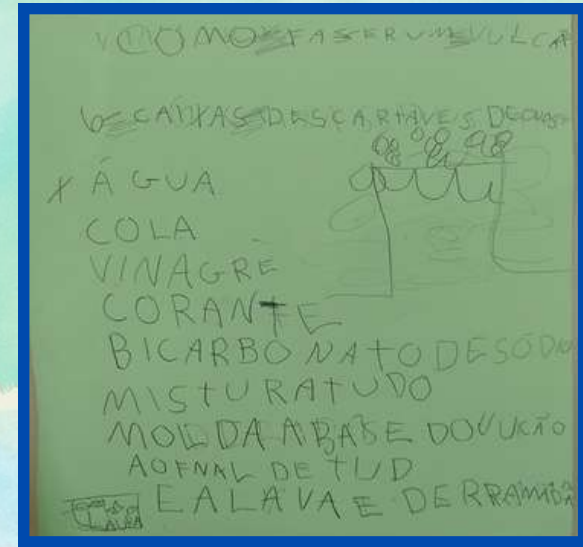 COMO FASER UM VULCA
6 CAIXAS DESCARTAVEIS DE
X ÁGUA
COLA
VINAGRE
CORANTE
BICARBONATO DE SÓD
MISTURA TUDO
MOLDA A BASE DO VUCÃO
AO FNAL DE TUD
E A LAVA E DERRAMADA
LAVA